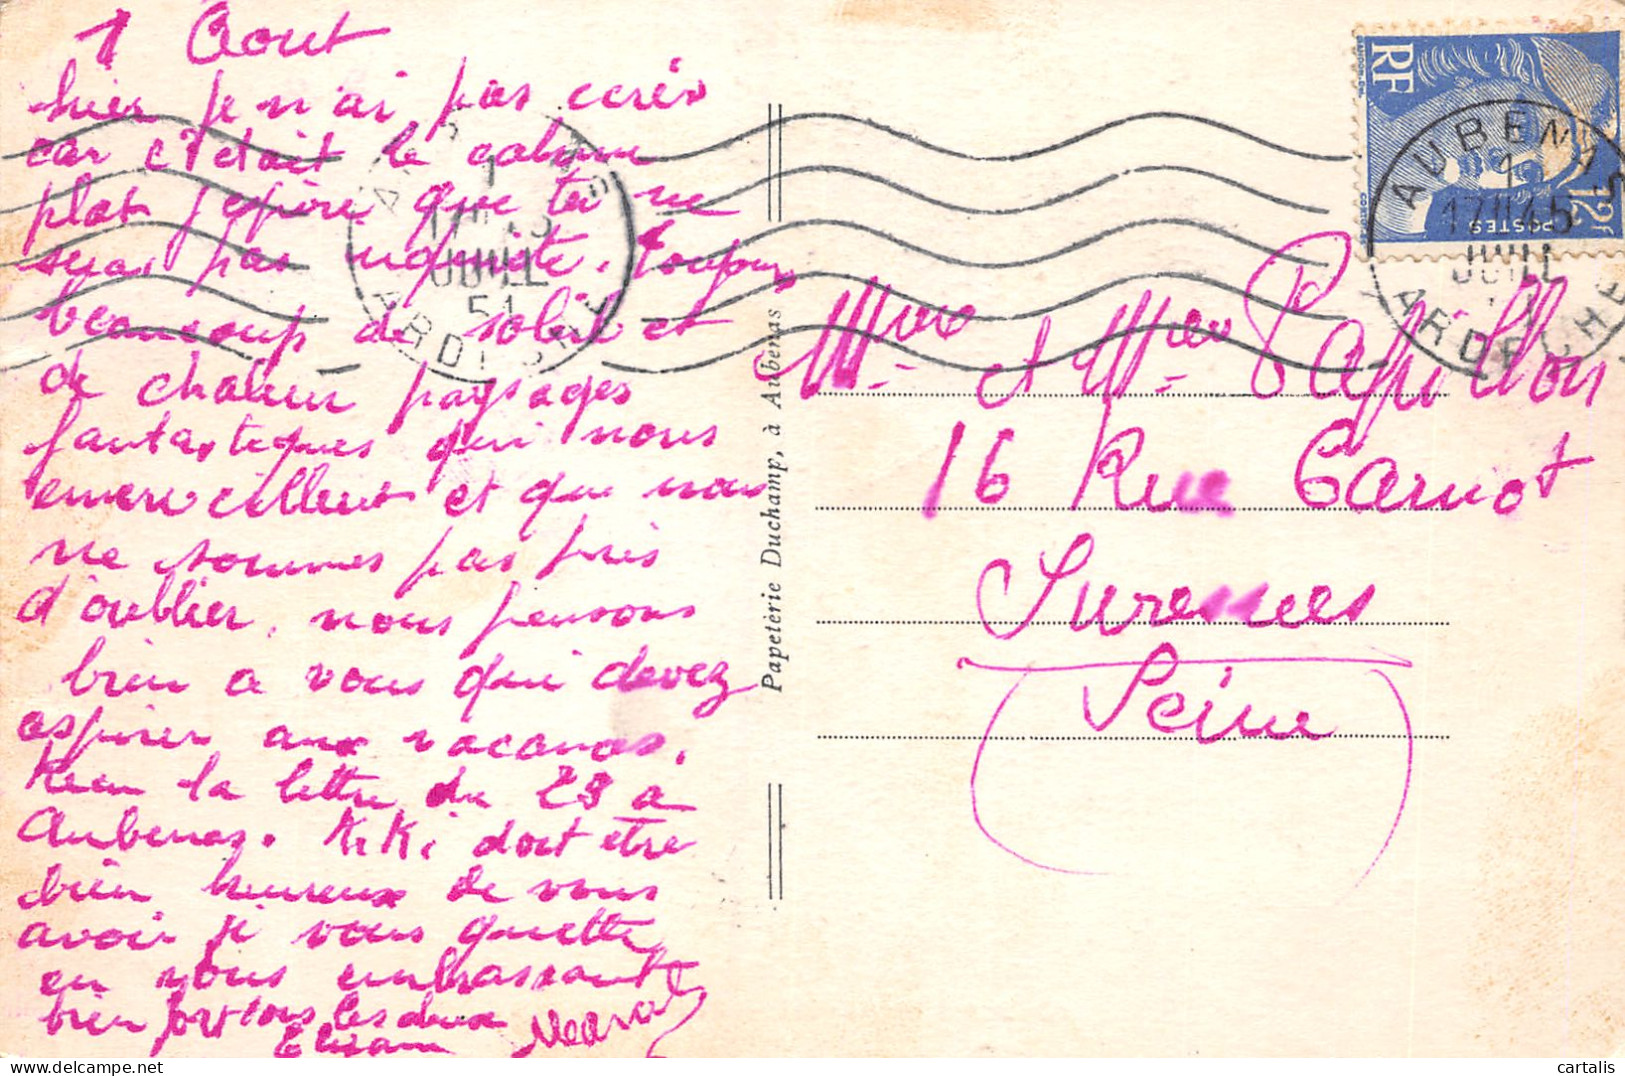 1 Aout
hier je n'ai pas ecris
car c'etait le calme
plat j'espère que tu ne
seras pas inquiete. toujours
beaucoup de soleil et
de chaleur paysages
fantastiques qui nous
emerveillent et que nous
ne sommes pas près
d'oublier, nous pensons
bien a vous qui devez
aspirer aux vacances.
Recu la lettre du 28 à
Aubenas. Kiki doit etre
bien heureux de vous
avoir je vous quitte
en vous embrassant
bien fort tous les deux
Papeterie Duchamp, à Aubenas
RF
POSTES
12F
AUBENAS
17H45
1
JUILL
ARDECHE
17H45
JUILL
51
ARDECHE
et Mme Papillon
16 Rue Carnot
Suresnes
Seine
cartalis